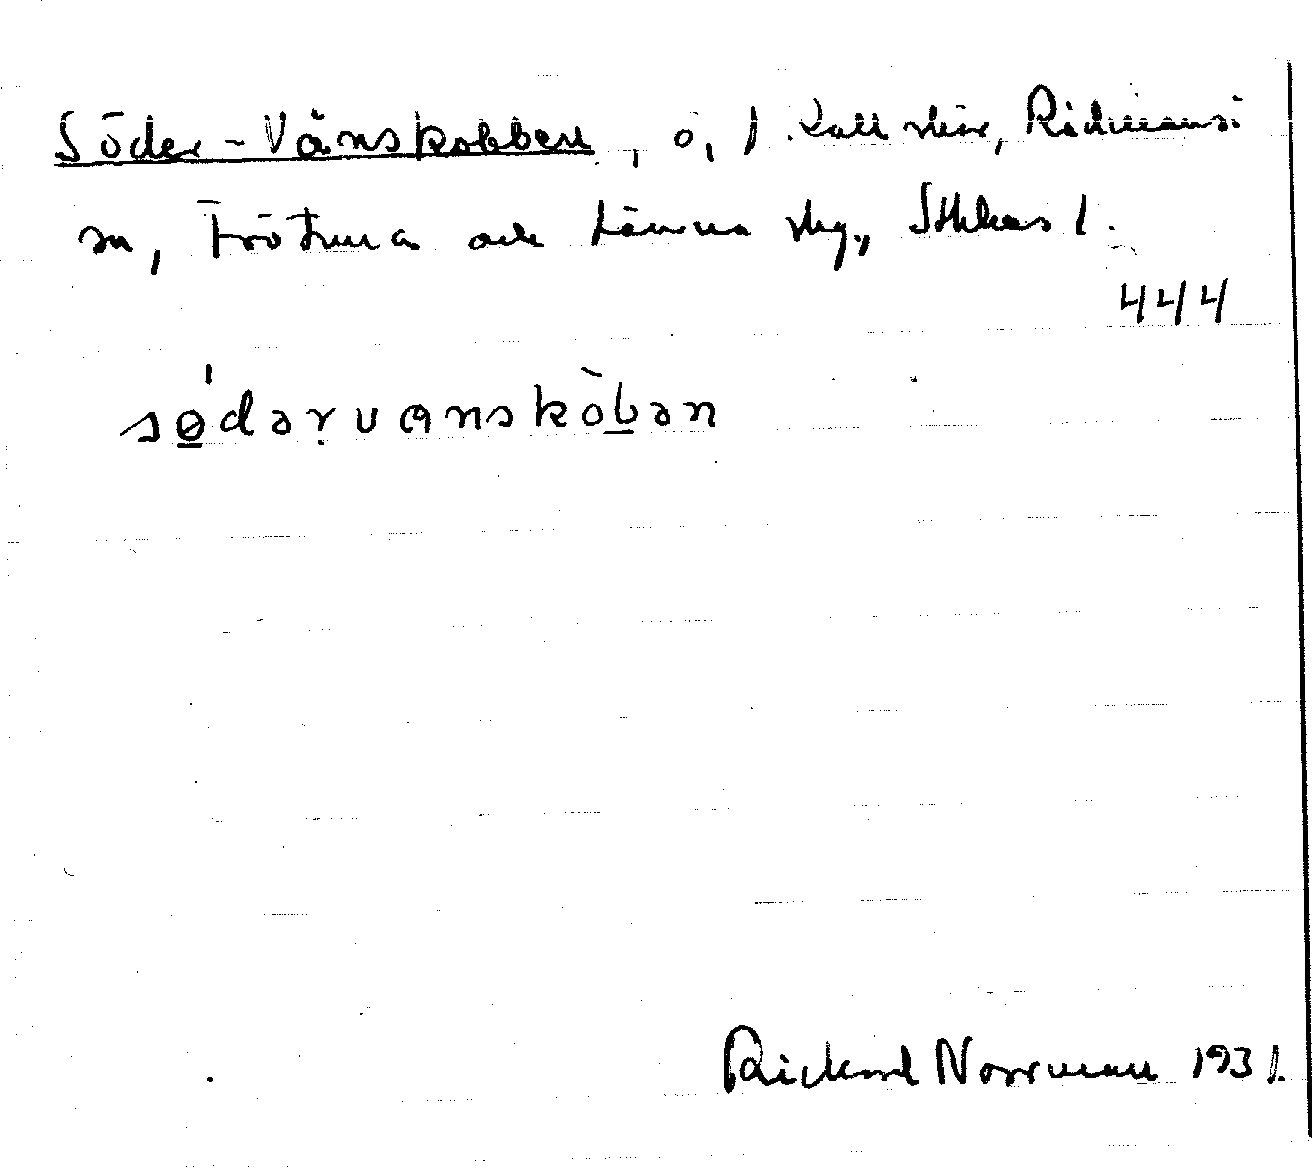 Söder-Vånskobben, ö, 1. Kallskär, Rådmansö
sn, Frötuna och Länna skg., Sthlms l.
444
sødərvanskòbən
Rickard Norrman 1931.